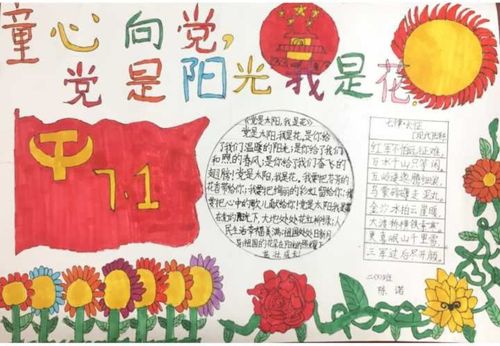 童心向党,
党是阳光我是花.
7.1
《党是太阳,我是花》
党是太阳,我是花。是你给
了我们温暖的阳光;是你给了我们
和煦的春风;是你给了我们奋飞的
翅膀!党是太阳,我是花。我要把芬芳的
花香带给你;我要把绚丽的彩虹留给你;我
要把心中的歌儿献给你!党是太阳我是花
在您的阳光下,大地处处花红柳绿,人
民生活幸福美满;祖国处处日新月
异!祖国的花朵在阳光的照耀下
茁壮成长!
七律·长征
红军不怕远征难,
万水千山只等闲。
五岭逶迤腾细浪,
乌蒙磅礴走泥丸。
金沙水拍云崖暖,
大渡桥横铁索寒。
更喜岷山千里雪,
三军过后尽开颜。
陈诺